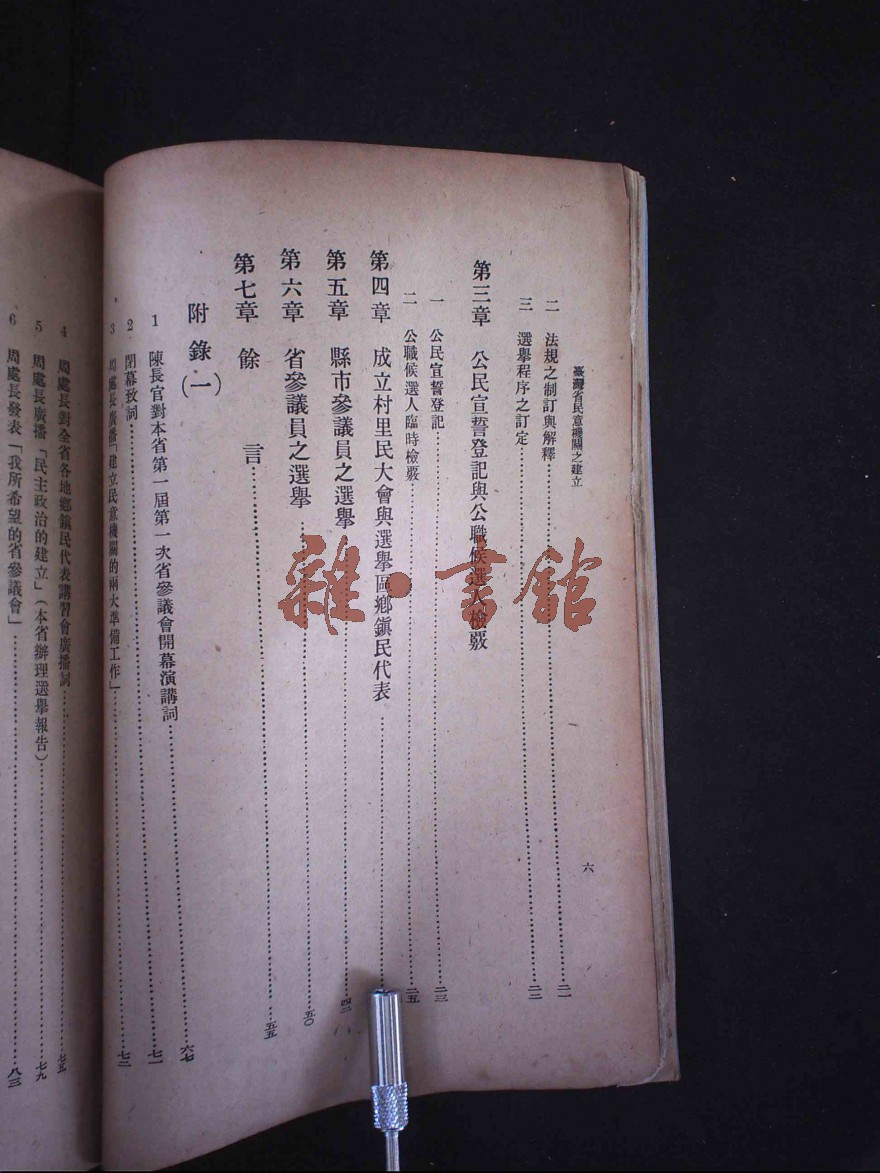 臺灣省民意機關之建立
六
二 法規之制訂與解釋 二一
三 選舉程序之訂定 二二
第三章 公民宣誓登記與公職候選人檢覈
一 公民宣誓登記 二三
二 公職候選人臨時檢覈 二五
第四章 成立村里民大會與選舉區鄉鎮民代表
第五章 縣市參議員之選舉 四二
第六章 省參議員之選舉 五〇
第七章 餘言 五五
附錄(一)
1 陳長官對本省第一屆第一次省參議會開幕演講詞 六七
2 閉幕致詞 七一
3 周處長廣播「建立民意機關的兩大準備工作」 七二
4 周處長對全省各地鄉鎮民代表講習會廣播詞 七五
5 周處長廣播「民主政治的建立」(本省辦理選舉報告) 七九
6 周處長發表「我所希望的省參議會」 八三
雜·書館